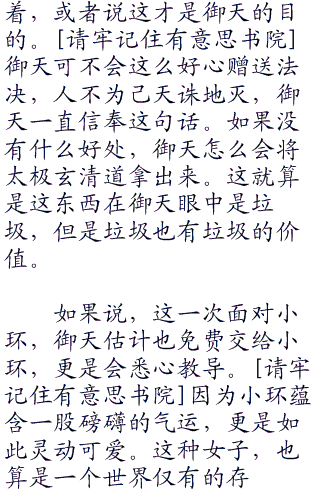 着，或者说这才是御天的目
的。[请牢记住有意思书院]
御天可不会这么好心赠送法
决，人不为己天诛地灭，御
天一直信奉这句话。如果没
有什么好处，御天怎么会将
太极玄清道拿出来。这就算
是这东西在御天眼中是垃
圾，但是垃圾也有垃圾的价
值。
如果说，这一次面对小
环，御天估计也免费交给小
环，更是会悉心教导。[请牢
记住有意思书院]因为小环蕴
含一股磅礴的气运，更是如
此灵动可爱。这种女子，也
算是一个世界仅有的存